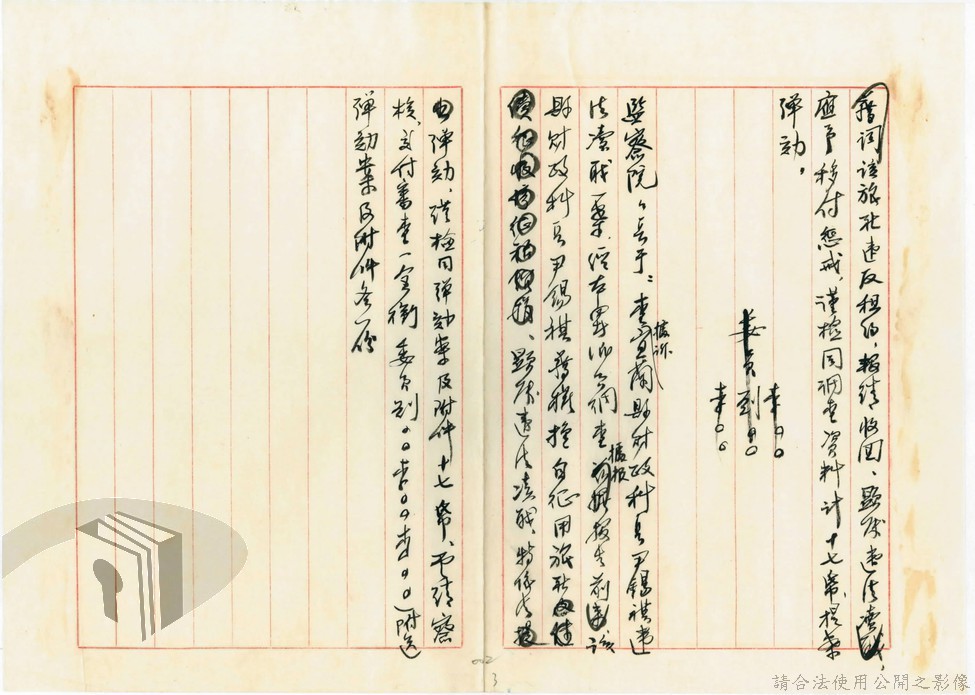 藉詞該旅社違反租約，報請收回、顯屬違法瀆職，
應予移付懲戒，謹檢同調查資料計十七帋，提案
彈劾，
李〇〇
委員劉〇〇
李〇〇
監察院ㄑ長于：查據訴宜蘭縣財政科長尹錫祺違
法瀆職一案，經右軍派員調查據報該
縣財政科長尹錫祺藉權擅自征用旅社
、顯屬違法瀆職，特依法提
由彈劾，謹檢同彈劾案及附件十七帋、而請察
核、交付審查一全銜委員劉〇〇李〇〇李〇〇附送
彈劾案及附件各一份
3
請合法使用公開之影像